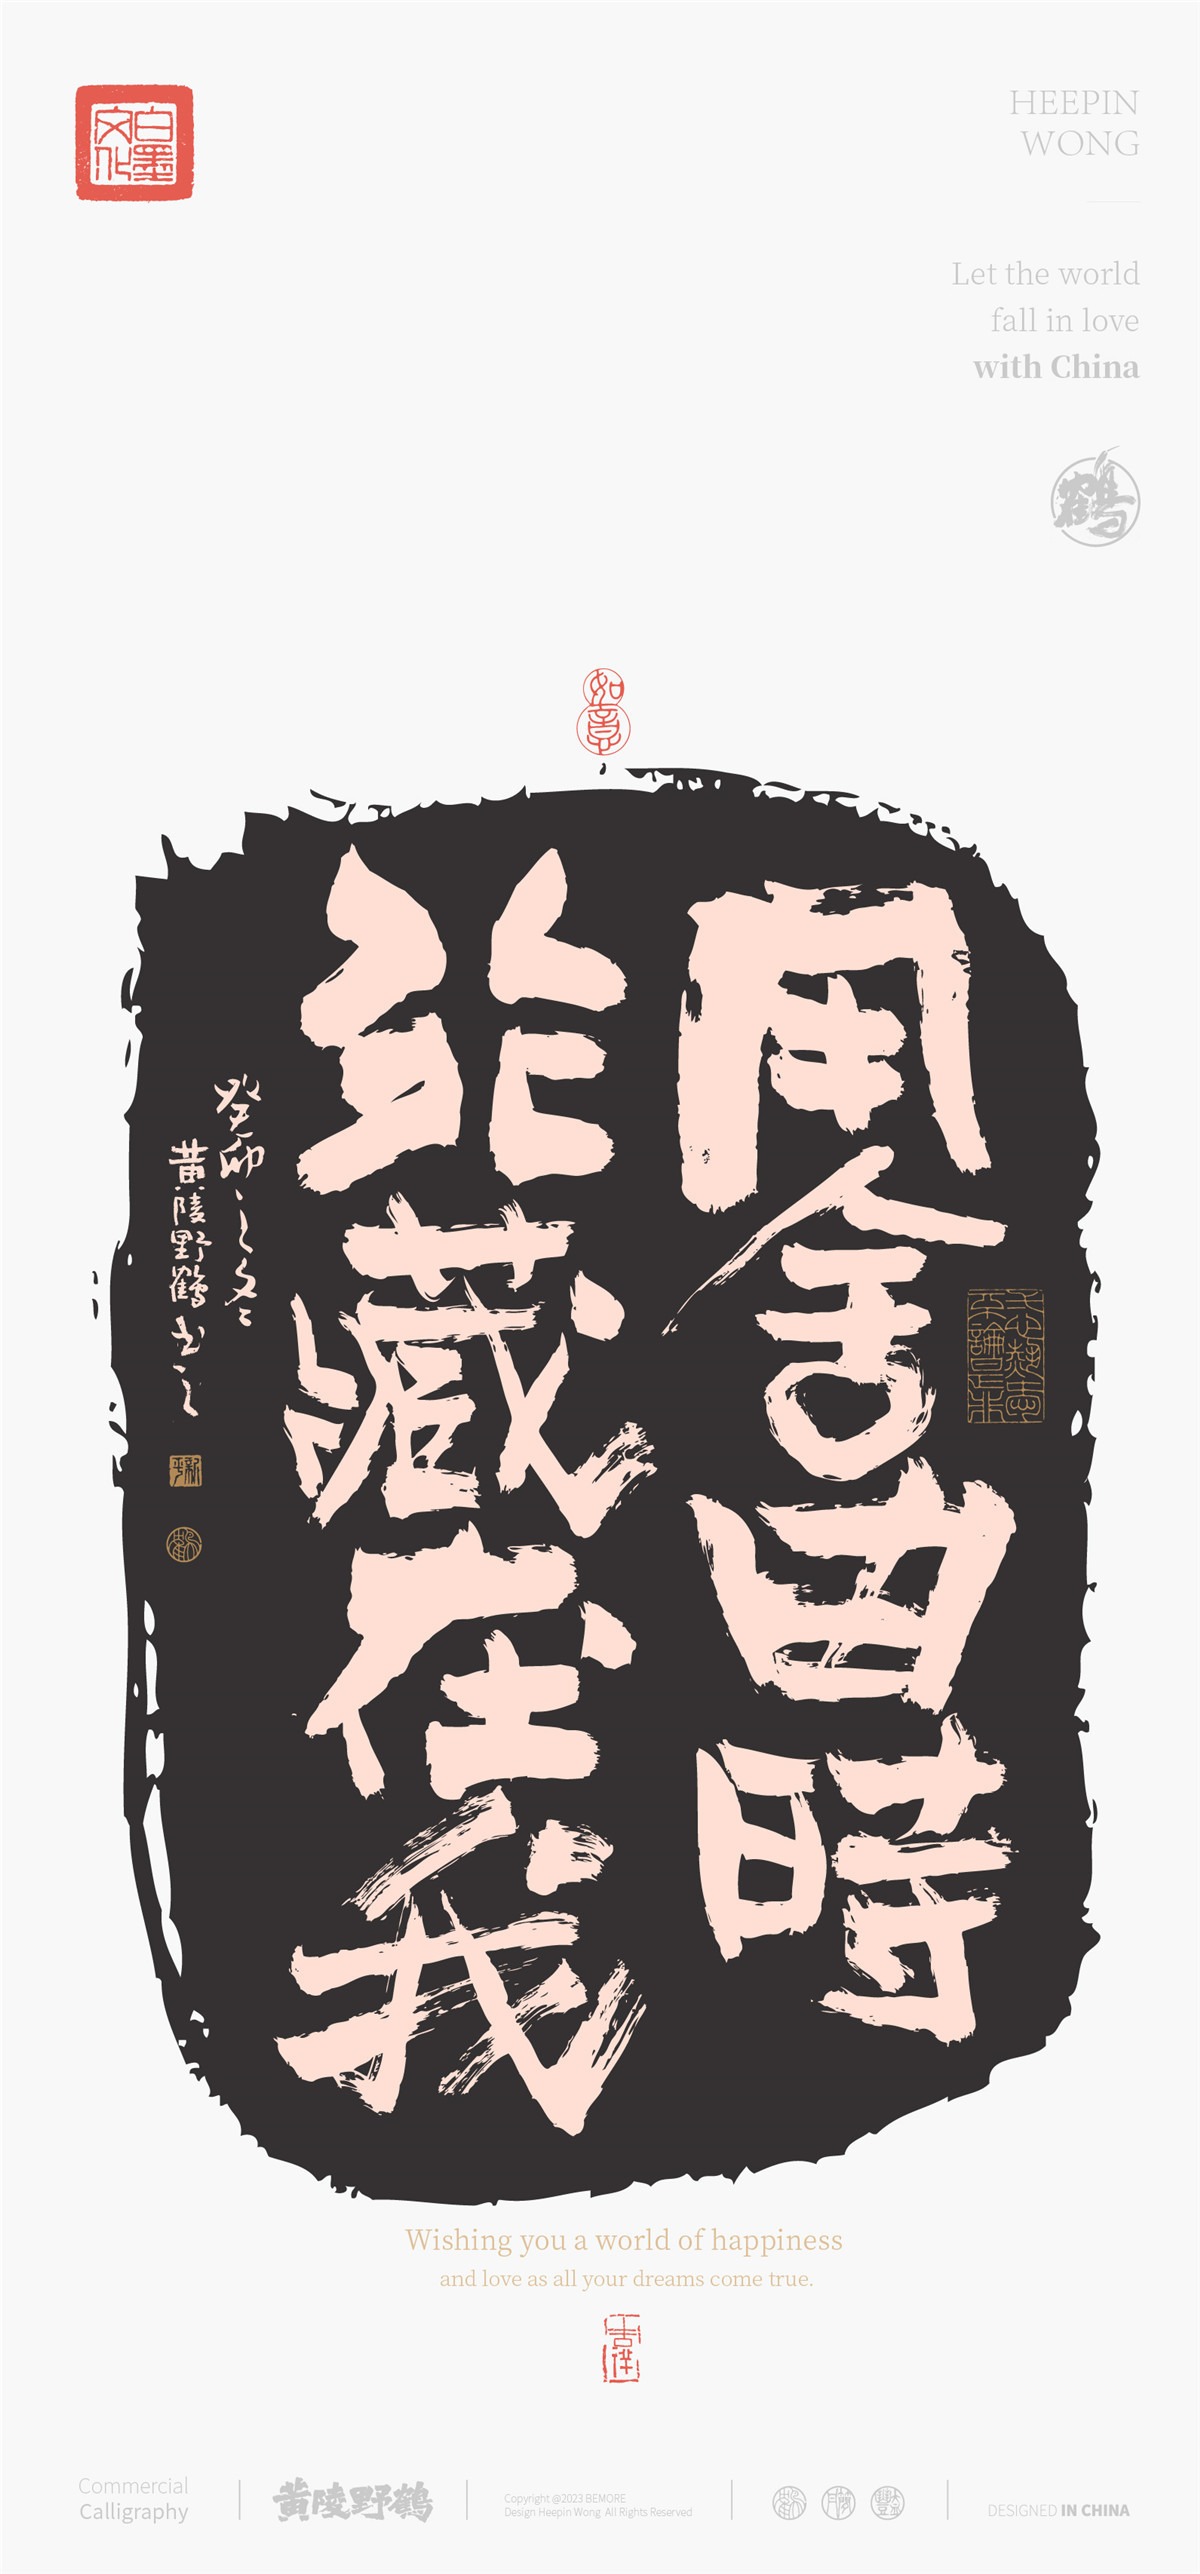 白墨
文化
HEEPIN
WONG
Let the world
fall in love
with China
鶴
如意
用舍由時
行藏在我
癸卯之冬
黄陵野鶴书之
Wishing you a world of happiness
and love as all your dreams come true.
吉祥
Commercial
Calligraphy
黄陵野鶴
Copyright @2023 BEMORE
Design Heepin Wong All Rights Reserved
DESIGNED IN CHINA